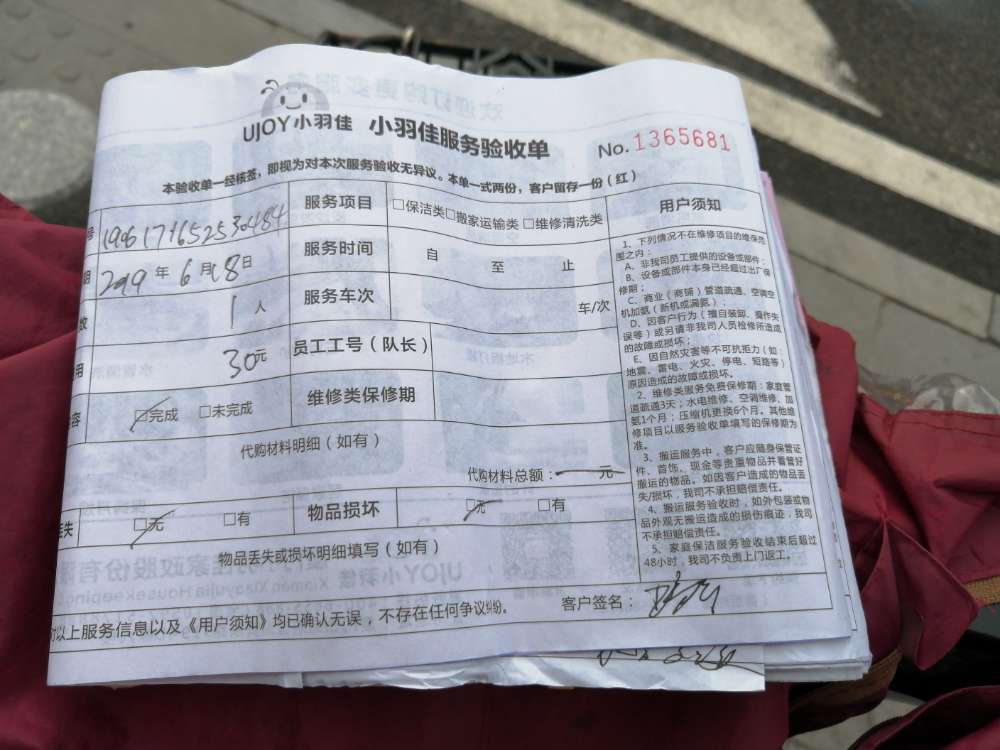 UJOY小羽佳 小羽佳服务验收单 No.1365681
本验收单一经核签，即视为对本次服务验收无异议。本单一式两份，客户留存一份（红）
服务项目 □保洁类□搬家运输类 □维修清洗类
2019年6月18日 服务时间 自 至 止
1人 服务车次 车/次
30元 员工工号（队长）
□完成 □未完成 维修类保修期
代购材料明细（如有）
代购材料总额： 元
□无 □有 物品损坏 □无 □有
物品丢失或损坏明细填写（如有）
以上服务信息以及《用户须知》均已确认无误，不存在任何争议纠纷。
客户签名：
用户须知
1、下列情况不在维修项目的维保范
围之内：
A、非我司员工提供的设备或部件；
B、设备或部件本身已经超过出厂保
修期；
C、商业（商铺）管道疏通、空调空
机加氨（新机或漏氨）；
D、因客户行为（擅自装卸、操作失
误等）或另请非我司人员检修所造成
的故障或损坏；
E、因自然灾害等不可抗拒力（如：
地震、雷电、火灾、停电、短路等）
原因造成的故障或损坏。
2、维修类服务免费保修期：家庭管
道疏通3天；水电维修、空调维修、加
氨1个月；压缩机更换6个月。其他维
修项目以服务验收单填写的保修期为
准。
3、搬运服务中，客户应随身保管证
件、首饰、现金等贵重物品并看管好
搬运的物品。如因客户造成的物品丢
失/损坏，我司不承担赔偿责任。
4、搬运服务验收时，如外包装或物
品外观无搬运造成的损伤痕迹，我司
不承担赔偿责任。
5、家庭保洁服务验收结束后超过
48小时，我司不负责上门返工。